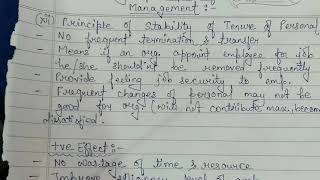 Management :-
(xii) Principle of Stability of Tenure of Personal
- No frequent termination & transfer
Means if an org. appoint employee for job
he/she shouldn't be removed frequently
- Provide feeling job security to emp.
- Frequent changes of personal may not be
good for org. (will not contribute max., become
dissatisfied.
+ve Effect :-
- No wastage of time & resource
- Improve efficiency level of